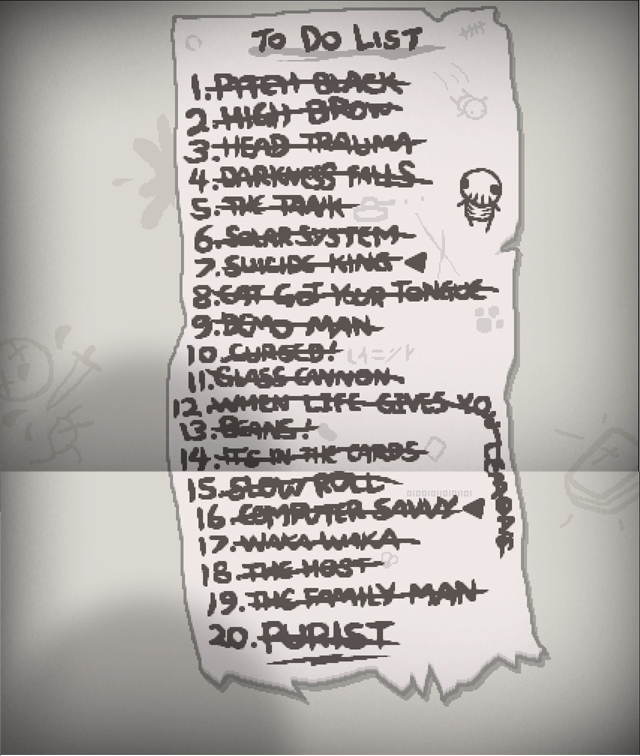 TO DO LIST
1. PITCH BLACK
2. HIGH BROW
3. HEAD TRAUMA
4. DARKNESS FALLS
5. THE TANK
6. SOLAR SYSTEM
7. SUICIDE KING
8. CAT GOT YOUR TONGUE
9. DEMO MAN
10. CURSED!
11. GLASS CANNON
12. WHEN LIFE GIVES YOU LEMONS
13. BEANS!
14. IT'S IN THE CARDS
15. SLOW ROLL
16. COMPUTER SAVVY
17. WAKA WAKA
18. THE HOST
19. THE FAMILY MAN
20. PURIST